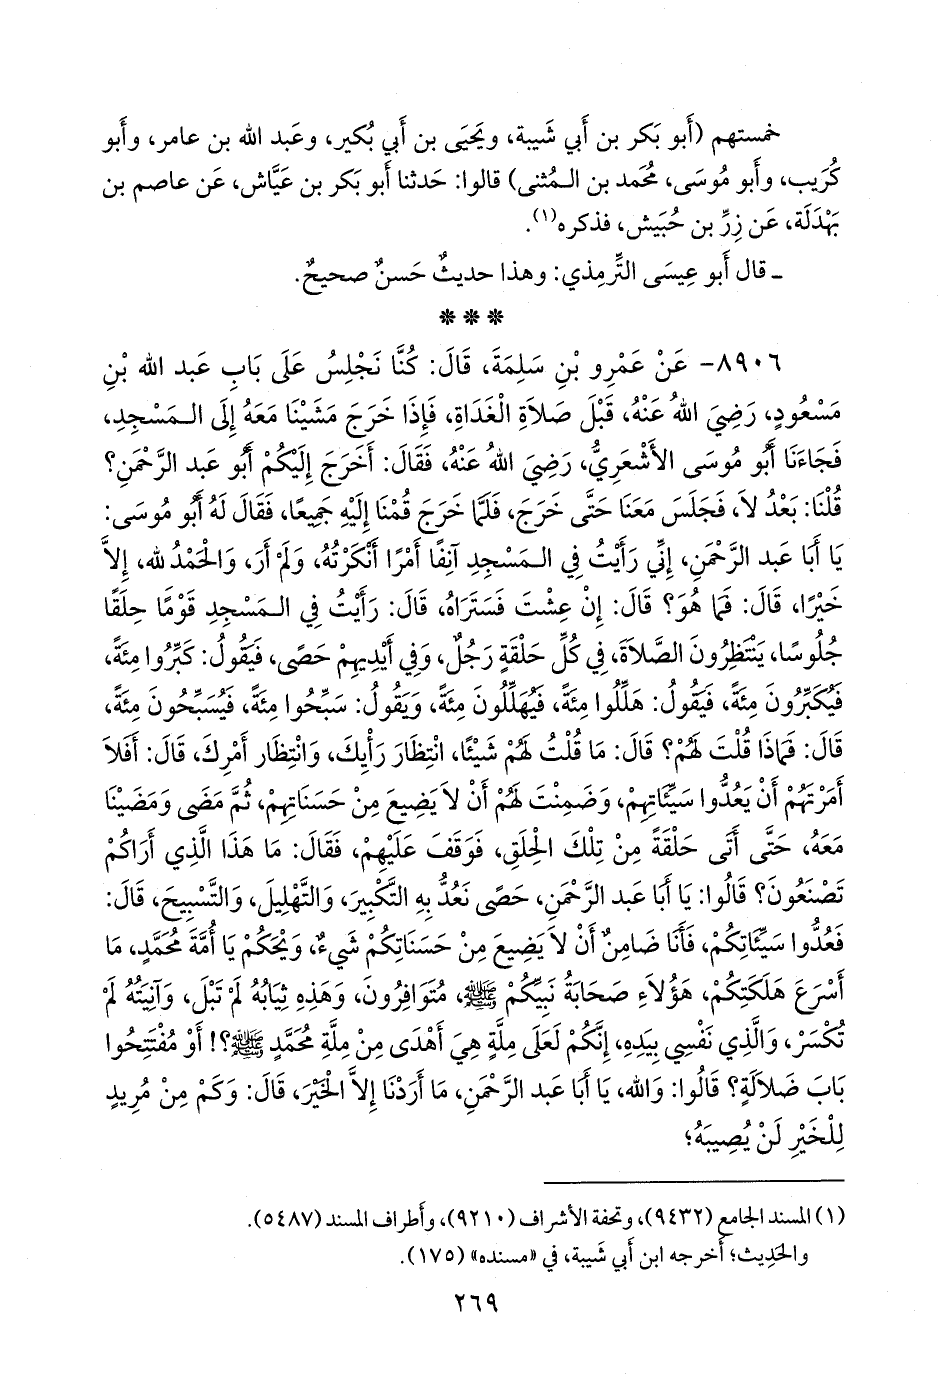 خمستهم (أَبو بَكر بن أَبي شَيبة، ويَحيَى بن أَبي بُكير، وعَبد الله بن عامر، وأَبو
كُرَيب، وأَبو مُوسَى، مُحَمد بن الـمُثنى) قالوا: حَدثنا أَبو بَكر بن عَيَّاش، عَن عاصم بن
بَهْدَلَة، عَن زِرِّ بن حُبَيش، فذكره(١).
ـ قال أَبو عِيسَى التِّرمِذي: وهذا حديثٌ حَسنٌ صحيحٌ.
***
٨٩٠٦- عَنْ عَمْرِو بْنِ سَلِمَةَ، قَالَ: كُنَّا نَجْلِسُ عَلَى بَابِ عَبد الله بْنِ
مَسْعُودٍ، رَضِيَ اللهُ عَنْهُ، قَبْلَ صَلاَةِ الْغَدَاةِ، فَإِذَا خَرَجَ مَشَيْنَا مَعَهُ إِلَى الـمَسْجِدِ،
فَجَاءَنَا أَبُو مُوسَى الأَشْعَرِيُّ، رَضِيَ اللهُ عَنْهُ، فَقَالَ: أَخَرَجَ إِلَيْكُمْ أَبُو عَبد الرَّحْمَنِ؟
قُلْنَا: بَعْدُ لاَ، فَجَلَسَ مَعَنَا حَتَّى خَرَجَ، فَلَمَّا خَرَجَ قُمْنَا إِلَيْهِ جَمِيعًا، فَقَالَ لَهُ أَبُو مُوسَى:
يَا أَبَا عَبد الرَّحْمَنِ، إِنِّي رَأَيْتُ فِي الـمَسْجِدِ آنِفًا أَمْرًا أَنْكَرْتُهُ، وَلَمْ أَرَ، وَالْحَمْدُ لله، إِلاَّ
خَيْرًا، قَالَ: فَمَا هُوَ؟ قَالَ: إِنْ عِشْتَ فَسَتَرَاهُ، قَالَ: رَأَيْتُ فِي الـمَسْجِدِ قَوْمًا حِلَقًا
جُلُوسًا، يَنْتَظِرُونَ الصَّلاَةَ، فِي كُلِّ حَلْقَةٍ رَجُلٌ، وَفِي أَيْدِيهِمْ حَصًى، فَيَقُولُ: كَبِّرُوا مِئَةً،
فَيُكَبِّرُونَ مِئَةً، فَيَقُولُ: هَلِّلُوا مِئَةً، فَيُهَلِّلُونَ مِئَةً، وَيَقُولُ: سَبِّحُوا مِئَةً، فَيُسَبِّحُونَ مِئَةً،
قَالَ: فَمَاذَا قُلْتَ لَهُمْ؟ قَالَ: مَا قُلْتُ لَهُمْ شَيْئًا، انْتِظَارَ رَأْيِكَ، وَانْتِظَار أَمْرِكَ، قَالَ: أَفَلاَ
أَمَرْتَهُمْ أَنْ يَعُدُّوا سَيِّئَاتِهِمْ، وَضَمِنْتَ لَهُمْ أَنْ لاَ يَضِيعَ مِنْ حَسَنَاتِهِمْ، ثُمَّ مَضَى وَمَضَيْنَا
مَعَهُ، حَتَّى أَتَى حَلْقَةً مِنْ تِلْكَ الْحِلَقِ، فَوَقَفَ عَلَيْهِمْ، فَقَالَ: مَا هَذَا الَّذِي أَرَاكُمْ
تَصْنَعُونَ؟ قَالُوا: يَا أَبَا عَبد الرَّحْمَنِ، حَصًى نَعُدُّ بِهِ التَّكْبِيرَ، وَالتَّهْلِيلَ، وَالتَّسْبِيحَ، قَالَ:
فَعُدُّوا سَيِّئَاتِكُمْ، فَأَنَا ضَامِنٌ أَنْ لاَ يَضِيعَ مِنْ حَسَنَاتِكُمْ شَيْءٌ، وَيْحَكُمْ يَا أُمَّةَ مُحَمَّدٍ، مَا
أَسْرَعَ هَلَكَتِكُمْ، هَؤُلاَءِ صَحَابَةُ نَبِيِّكُمْ ﷺ، مُتَوَافِرُونَ، وَهَذِهِ ثِيَابُهُ لَمْ تَبْلَ، وَآنِيَتُهُ لَمْ
تُكْسَرْ، وَالَّذِي نَفْسِي بِيَدِهِ، إِنَّكُمْ لَعَلَى مِلَّةٍ هِيَ أَهْدَى مِنْ مِلَّةِ مُحَمَّدٍ ﷺ؟! أَوْ مُفْتَتِحُوا
بَابَ ضَلاَلَةٍ؟ قَالُوا: وَالله، يَا أَبَا عَبد الرَّحْمَنِ، مَا أَرَدْنَا إِلاَّ الْخَيْرَ، قَالَ: وَكَمْ مِنْ مُرِيدٍ
لِلْخَيْرِ لَنْ يُصِيبَهُ؛
(١) المسند الجامع (٩٤٣٢)، وتحفة الأشراف (٩٢١٠)، وأَطراف المسند (٥٤٨٧).
والحَدِيث؛ أَخرجه ابن أَبي شَيبة، في «مسنده» (١٧٥).
٢٦٩